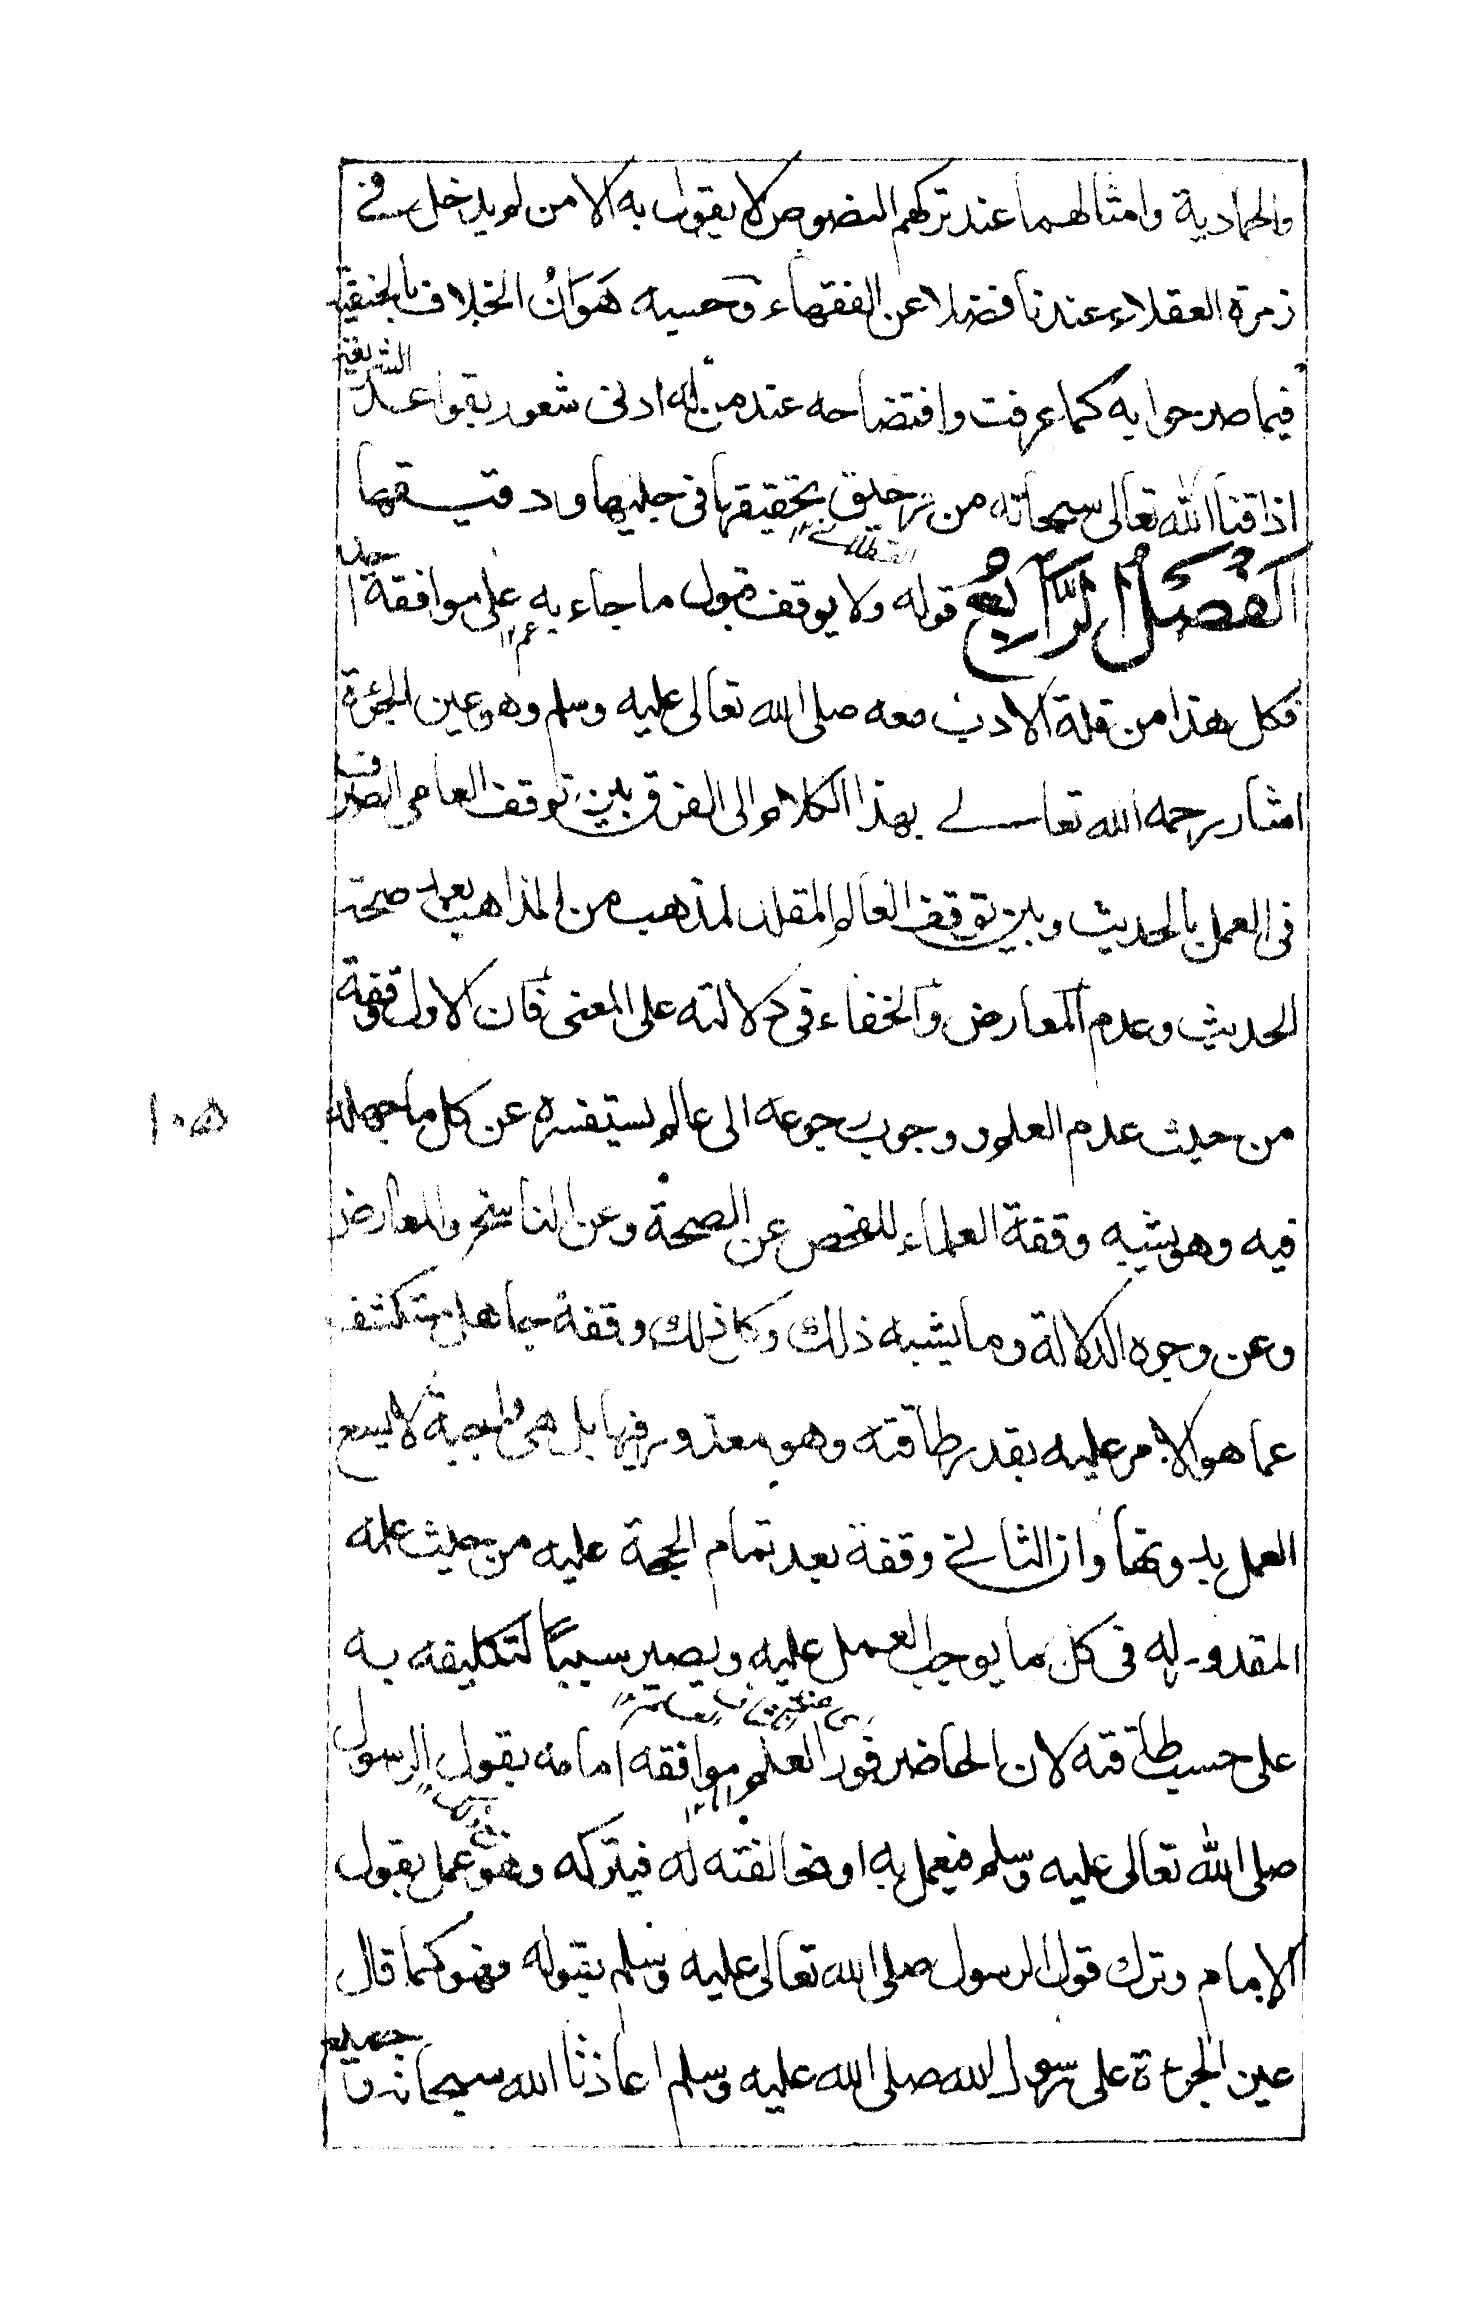 والحمادية وامثالهما عند تركهم النصوص لا يقول به الا من لم يدخل في
زمرة العقلاء عندنا فضلا عن الفقهاء وحسبه هوان الخلاف بالحنفية
فيما صرحوا به كما عرفت وافتضاحه عند من له ادنى شعور بقواعد الشريفة
اذاقنا الله تعالى سبحانه من رحيق تحقيقها في جليها ودقيقها
القسطلانے ١٢
اَلْفَصْلُ الرَّابِعُ قوله ولا يوقف قبول ما جاء به على موافقة احد
عم ١٢
فكل هذا من قلة الادب معه صلى الله تعالى عليه وسلم وهو عين الجرءة
اشار رحمه الله تعالے بهذا الكلام الى الفرق بين توقف العامى الصرف
فى العمل بالحديث وبين توقف العالم المقلد لمذهب من المذاهب بعد صحة
الحديث وعدم المعارض والخفاء فى دلالته على المعنى فان الاول وقفة
من حيث عدم العلم ووجوب رجوعه الى عالم يستفسره عن كل ما جهله
فيه وهى يشبه وقفة العلماء للفحص عن الصحة وعن الناسخ والمعارض
وعن وجوه الدلالة وما يشبه ذلك وكان ذلك وقفة جاهل متكشف
عما هو الامر عليه بقدر طاقته وهو معذور فيها بل هى واجبة لا يسع
العمل بدونها وان الثانے وقفة بعد تمام الحجة عليه من حيث علمه
المقدور له فى كل ما يوجب العمل عليه ويصير سببًا لتكليفه به
على حسب طاقته لان الحاضر فور العلم موافقه امامه بقول الرسول
صلى الله تعالى عليه وسلم فيعمل به او مخالفته له فيتركه وهو عمل بقول
الامام وترك قول الرسول صلى الله تعالى عليه وسلم بقوله فهو كما قال
عين الجرءة على رسول الله صلى الله عليه وسلم اعاذنا الله سبحانه وجميع
١٠٥